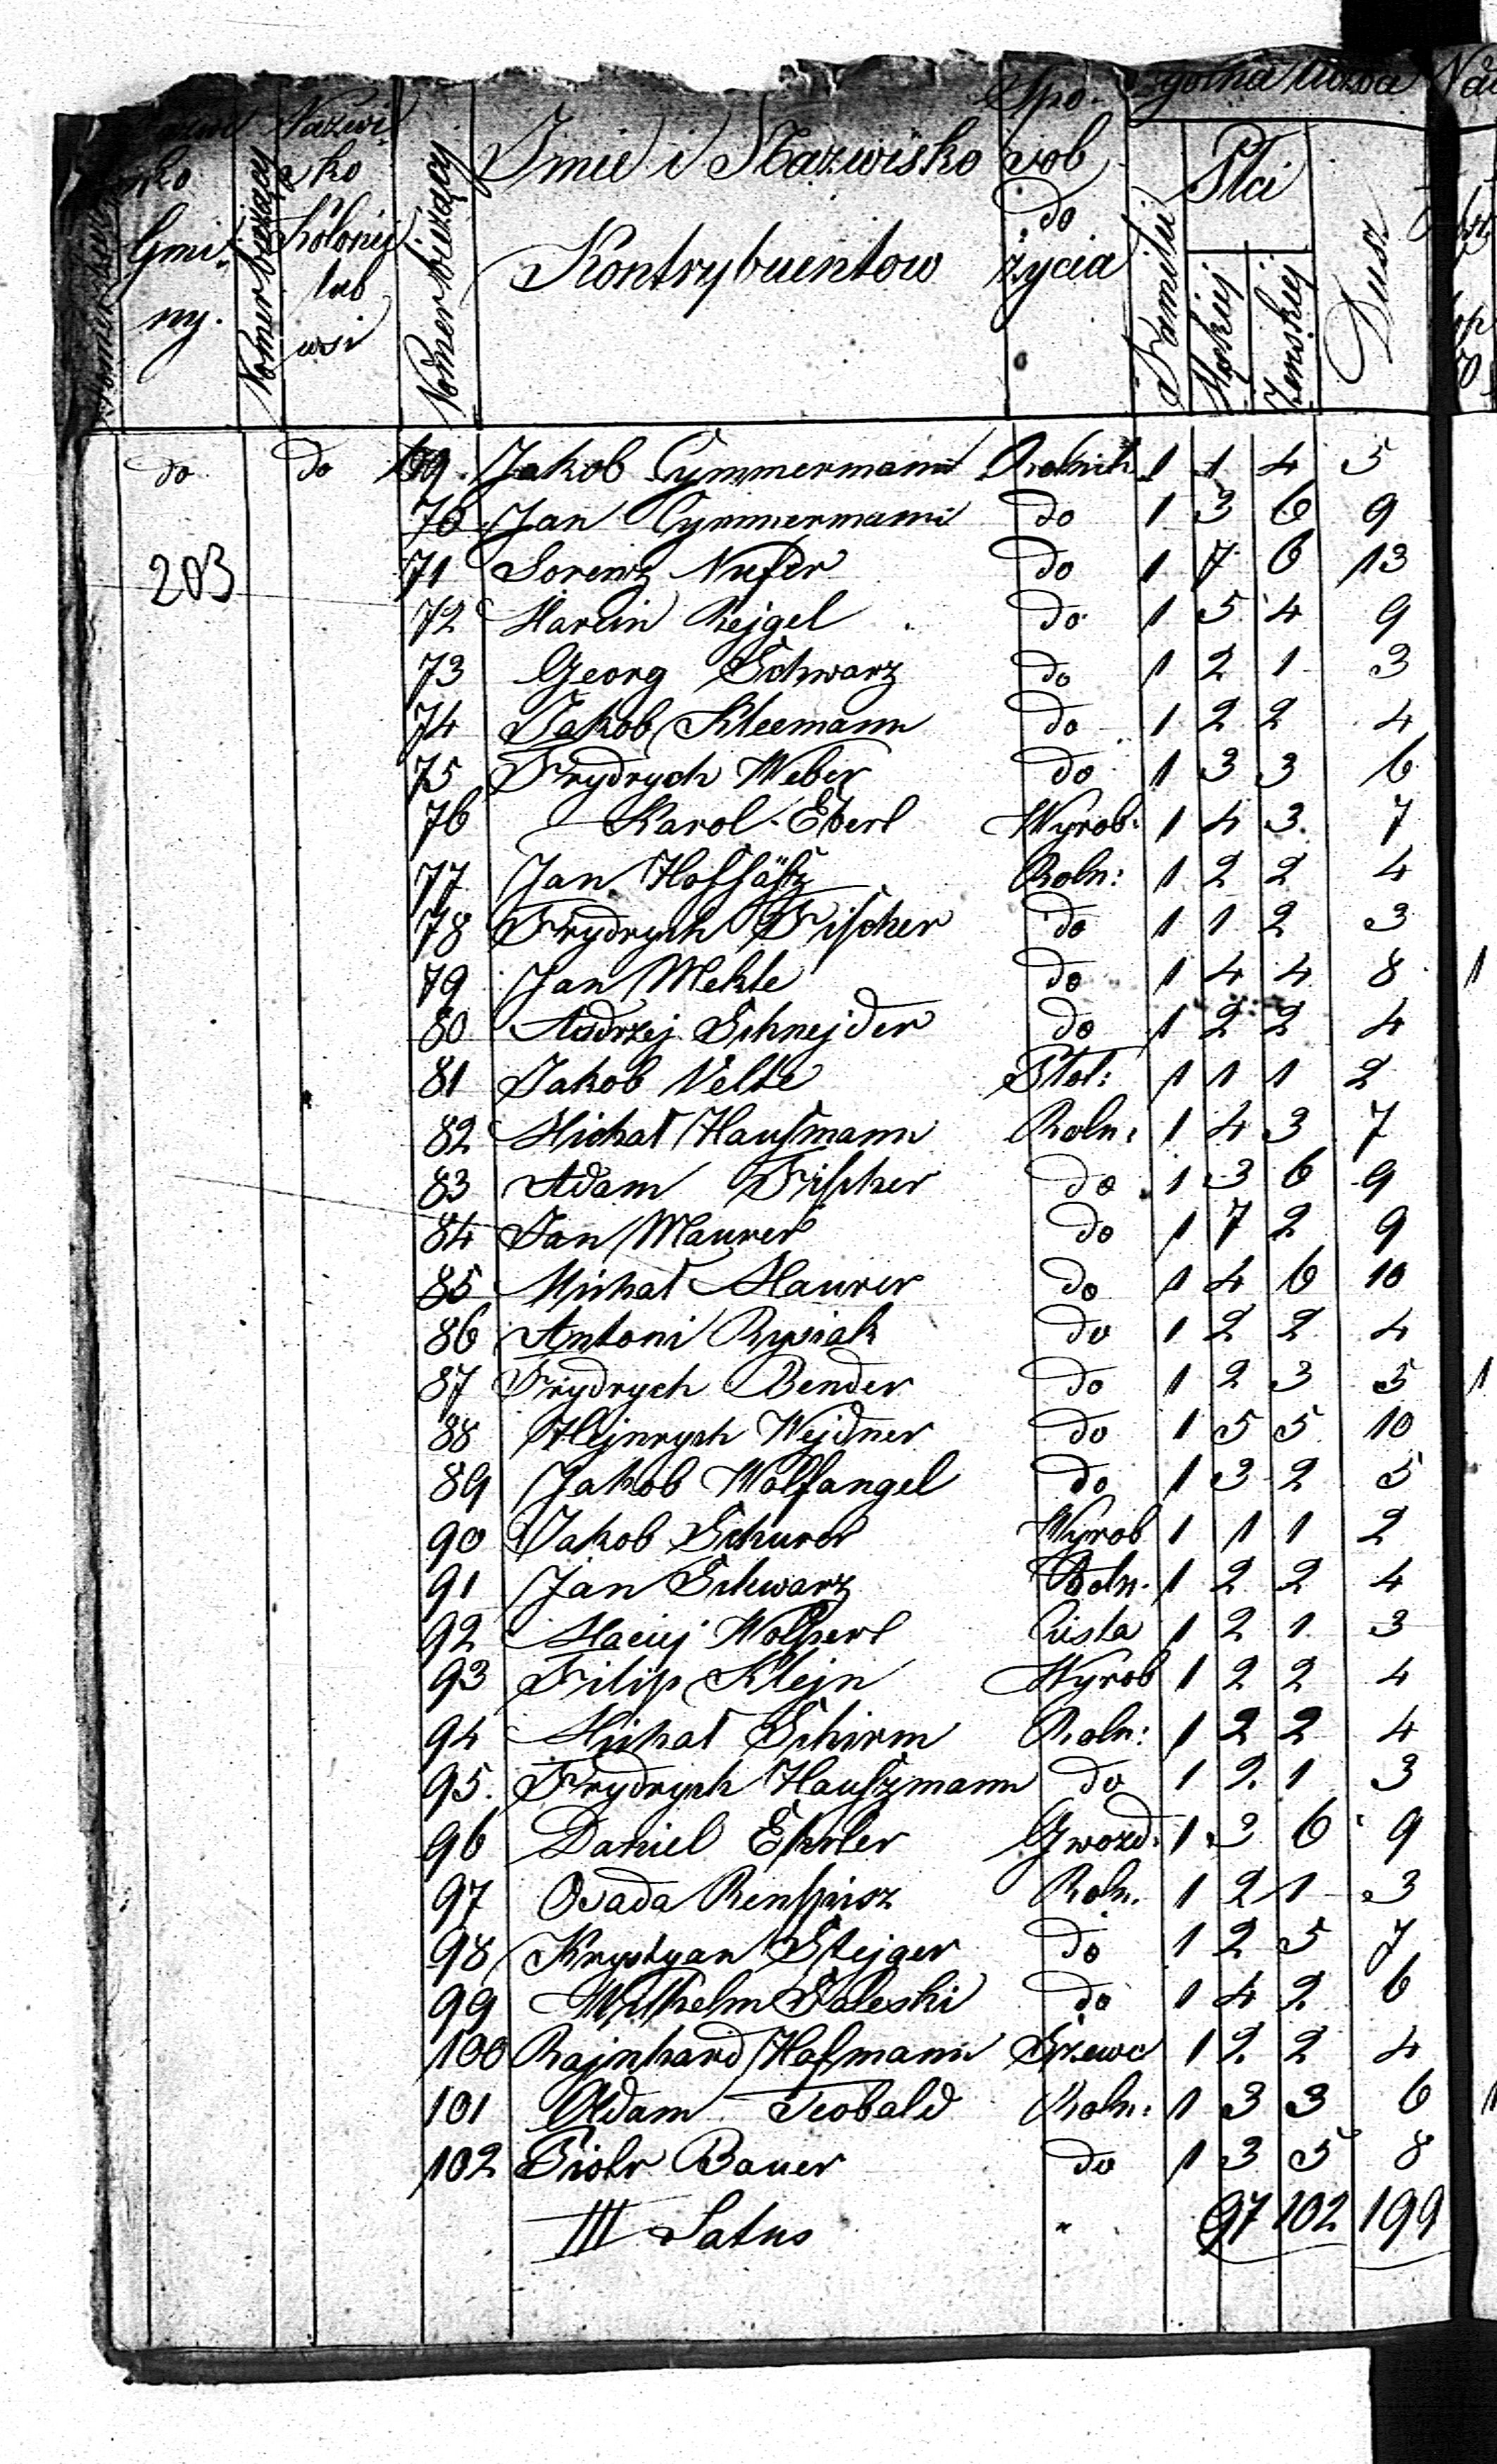 Spo- ogólna liczba
Nazwi Imie i Nazwisko sob Płci
sko ko do
Gmi- Kolonij Kontrybuentow życia
ny. lub
wsi
Nomer bieżący Nomer bieżący Familii Męskiej Żenskiej Dusz
do do 69. Jakob Cymmermann Rolnik 1 1 4 5
70. Jan Cymmermann do 1 3 6 9
203 71 Lorenz Nufer do 1 7 6 13
72 Marcin Rejgel do 1 5 4 9
73 Georg Schwarz do 1 2 1 3
74 Jakob Kleemann do 1 2 2 4
75 Frydrych Weber do 1 3 3 6
76 Karol Eberl Wyrob: 1 4 3 7
77 Jan Hofsäſz Roln: 1 2 2 4
78 Frydrych Fiſcher do 1 1 2 3
79 Jan Mehle do 1 4 4 8 1
80 Andrzej Schnejder do 1 2 2 4
81 Jakob Velte Stol: 1 1 1 2
82 Michał Hauſmann Roln: 1 4 3 7
83 Adam Fiſcher do 1 3 6 9
84 Jan Maurer do 1 7 2 9
85 Michał Maurer do 1 4 6 10
86 Antoni Rysiak do 1 2 2 4
87 Frydrych Bender do 1 2 3 5 1
88 Hejnrych Wejdner do 1 5 5 10
89 Jakob Wolfangel do 1 3 2 5
90 Jakob Schurr Wyrob 1 1 1 2
91 Jan Schwarz Roln. 1 2 2 4
92 Maciej Wolpert Cieśla 1 2 1 3
93 Filip Klejn Wyrob 1 2 2 4
94 Michał Schirm Roln: 1 2 2 4
95. Frydrych Hauſzmann do 1 2 1 3
96 Daniel Ehrler Gwozd: 1 3 6 9
97 Osada Rempisz Roln. 1 2 1 3
98 Krystyan Stejger do 1 2 5 7
99 Wilhelm Saleski do 1 4 2 6
100 Rajnhard Hofmann Szewc 1 2 2 4
101 Adam Teobald Roln: 1 3 3 6 1
102 Piotr Bauer do 1 3 5 8
III Latus " 97 102 199